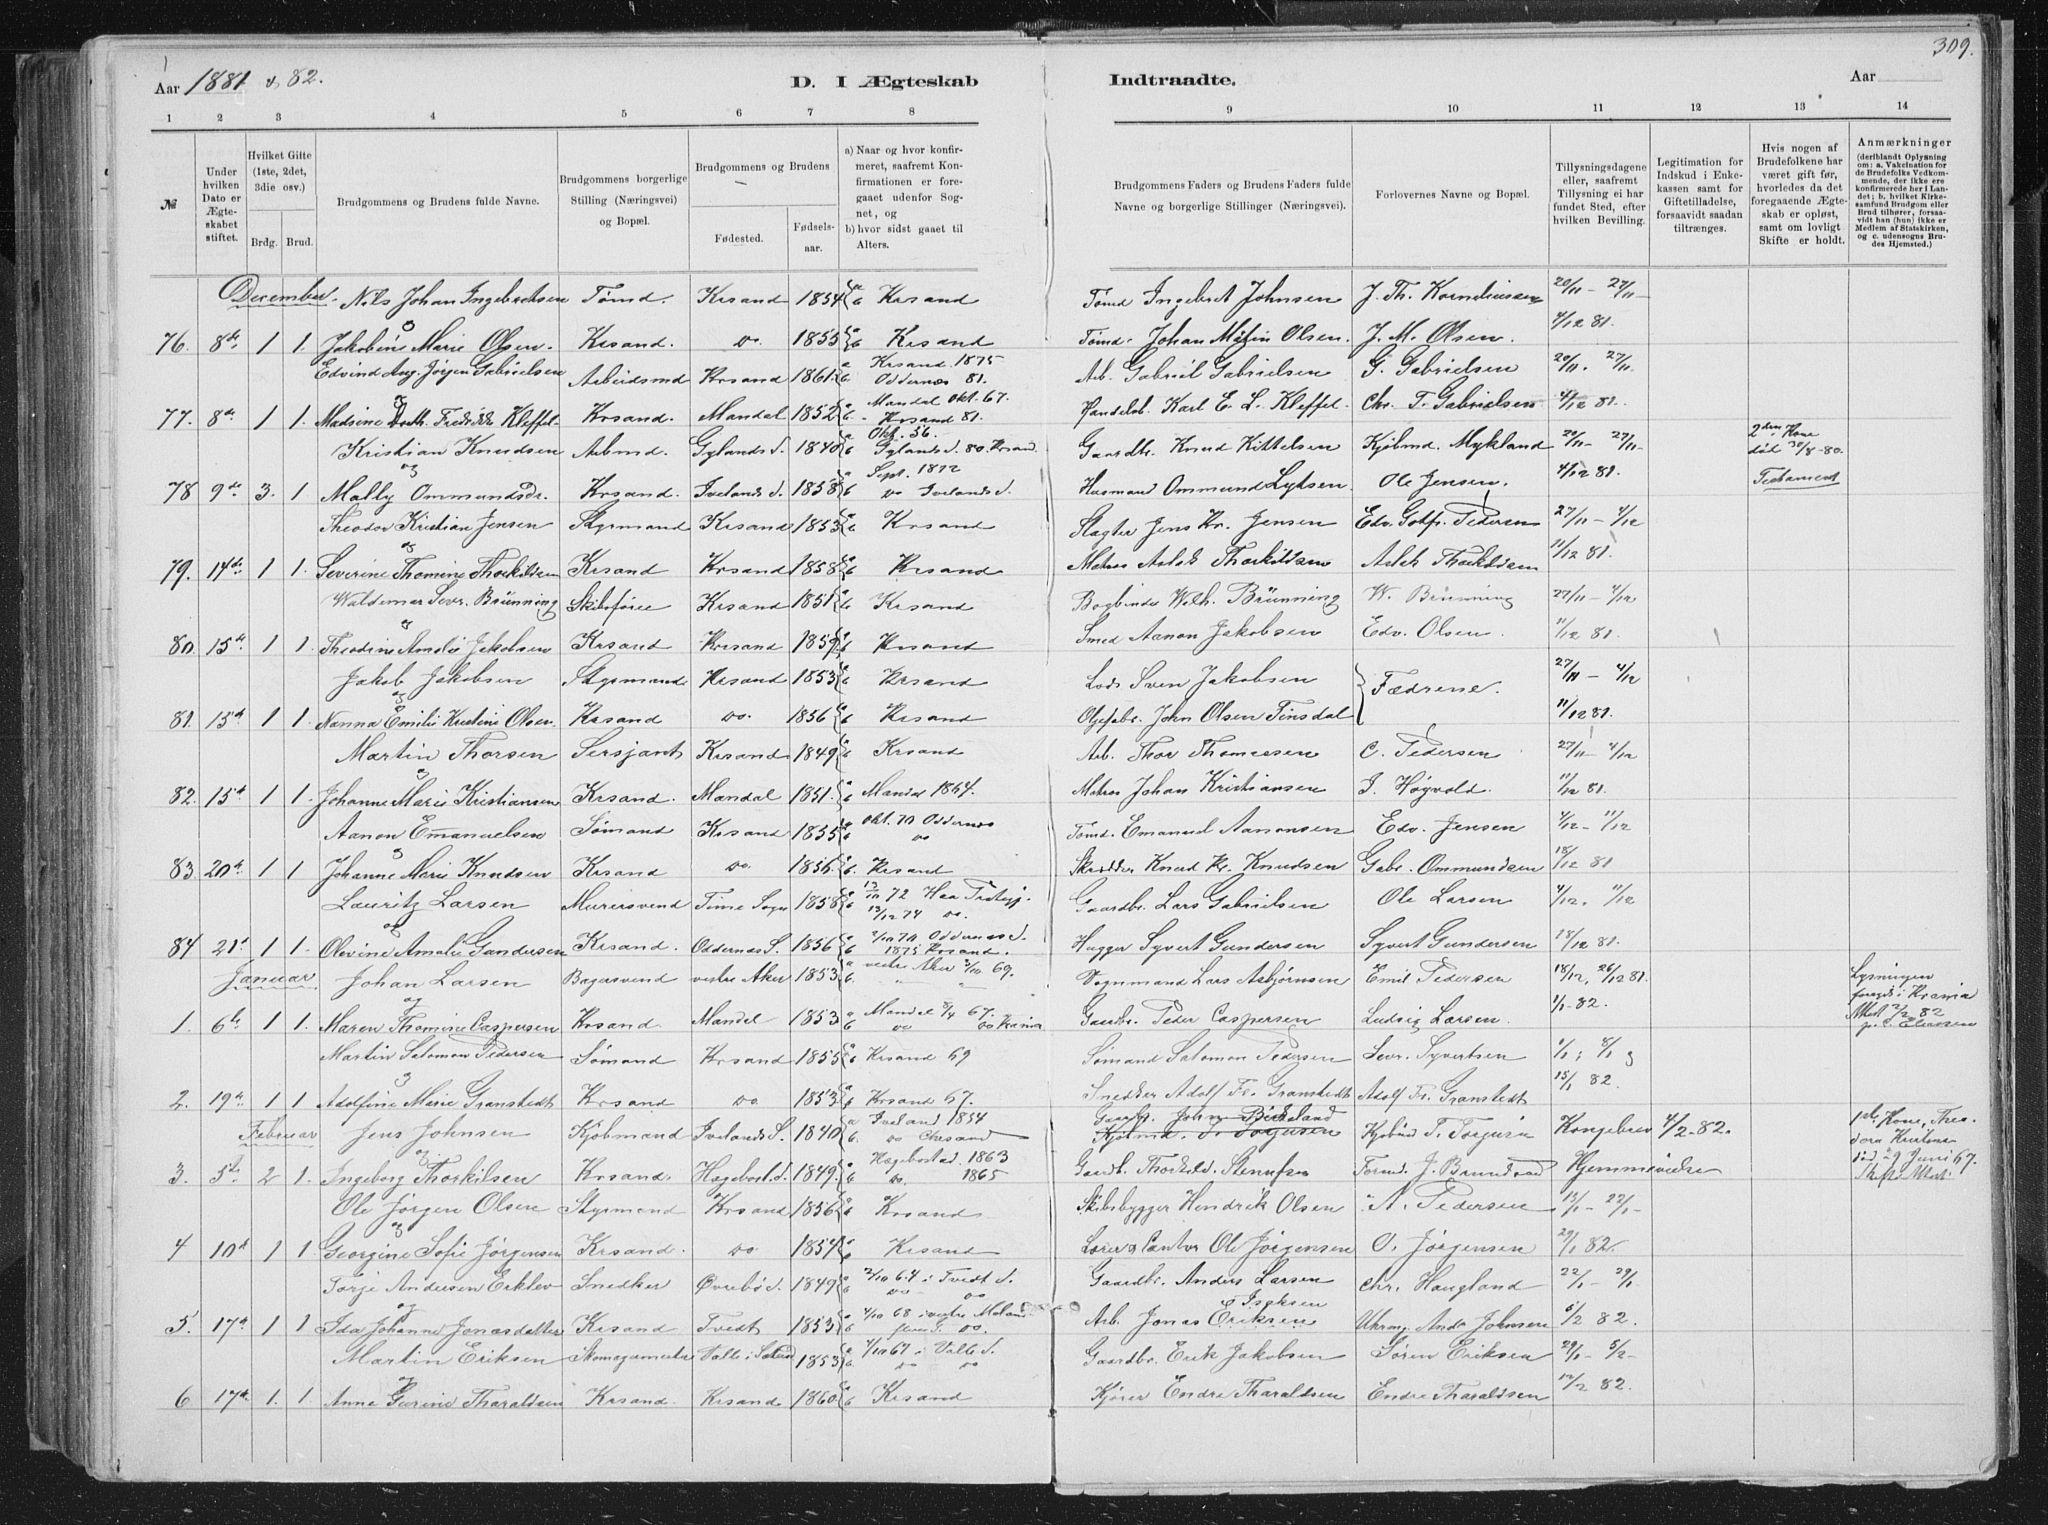 309.
Aar 1881 & 82. D. I Ægteskab Indtraadte. Aar
1 2 3 4 5 6 7 8 9 10 11 12 13 14
№
Under hvilken Dato er Ægteskabet stiftet.
Hvilket Gifte (1ste, 2det, 3die osv.)
Brdg. Brud.
Brudgommens og Brudens fulde Navne.
Brudgommens borgerlige Stilling (Næringsvei) og Bopæl.
Brudgommens og Brudens
Fødested. Fødselsaar.
a) Naar og hvor konfirmeret, saafremt Konfirmationen er foregaaet udenfor Sognet, og
b) hvor sidst gaaet til Alters.
Brudgommens Faders og Brudens Faders fulde Navne og borgerlige Stillinger (Næringsvei).
Forlovernes Navne og Bopæl.
Tillysningsdagene eller, saafremt Tillysning ei har fundet Sted, efter hvilken Bevilling.
Legitimation for Indskud i Enkekassen samt for Giftetilladelse, forsaavidt saadan tiltrænges.
Hvis nogen af Brudefolkene har været gift før, hvorledes da det foregaaende Ægteskab er opløst, samt om lovligt Skifte er holdt.
Anmærkninger (deriblandt Oplysning om: a. Vakcination for de Brudefolks Vedkommende, der ikke ere konfirmerede her i Landet; b. hvilket Kirkesamfund Brudgom eller Brud tilhører, forsaavidt han (hun) ikke er Medlem af Statskirken, og c. udensogns Brudes Hjemsted.)
December. Nils Johan Ingebretsen Tømd. Krsand 1854 a b Krsand Tømd Ingebret Johnsen J. Th. Korneliussen 20/11 - 27/11
76. 8de 1 1. Jakobine Marie Olsen. Krsand. do. 1855 a b Krsand Tømd. Johan Olsen. J. M. Olsen. 4/12 81.
Edvind Aug. Jørgen Gabrielsen Arbeidsmd Krsand 1861 a Krsand 1875 b Oddernæs 81. Arb. Gabriel Gabrielsen G. Gabrielsen 20/11. 27/11
77. 8de 1 1 Madsine Doth. Fredrikke Kleffel Krsand. Mandal 1852 a Mandal Okt. 67. b Krsand 81. Handelsb. Karl E. L. Kleffel. Chr. T. Gabrielsen 4/12 81.
Kristian Knudsen Arbmd. Gylands S. 1840 a Okt. 56. b Gylands S. 80. Krsand Gaardbr. Knud Kittelsen Kjøbmd. Mykland 20/11 - 27/11 2den Kone død 30/8-80.
78 9de 3. 1 og Mally Ommundsdr. Krsand. Ivelands S. 1858 a Sept. 1872 b do Ivelands S. Husmand Ommund Lytsen. Ole Jensen. 4/12 81. Testament
Theodor Kristian Jensen Styrmand Krsand 1853 a b Krsand Slagter Jens Kr. Jensen Edv. Gotfr. Pedersen 27/11 - 4/12
79. 14de 1 1. og Severine Thomine Thorkildsen Krsand Krsand 1858 a b Krsand Matros Aslak Thorkildsen Aslak Thorkildsen 11/12 81.
Waldemar Sevr. Brünning Skibsfører Krsand 1851 a b Krsand Bogbinder Wilh. Brünning W. Brünning 27/11 - 4/12
80. 15de 1 1. og Theodine Amalie Jakobsen Krsand Krsand 1859 a b Krsand Smed Aanon Jakobsen Edv. Olsen. 11/12 81.
Jakob Jakobsen Styrmand Krsand 1853 a b Krsand Lods Sven Jakobsen Fædrene. 27/11 - 4/12
81. 15de 1 1. og Nanna Emilie Kristine Olsen. Krsand do. 1856 a b Krsand John Olsen Finsdal 11/12 81.
Martin Thorsen Sersjant Krsand 1849 a b Krsand Arb. Thor Thomessen C. Pedersen 27/11 - 4/12
82. 15de 1 1. Johanne Marie Kristiansen Krsand. Mandal 1851. a b Mandal 1864. Matros Johan Kristiansen J. Høyvold. 11/12 81.
Aanon Emanuelsen Sømand Krsand 1855 a b Okt. 70 Oddernæs do Tømd. Emanuel Aanonsen Edv. Jensen 4/12 - 11/12
83 20de 1 1. Johanne Marie Knudsen Krsand do. 1856 a b. Krsand Skrædder Knud Kr. Knudsen Gabr. Ommundsen 18/12 81
Lauritz Larsen Murersvend Time Sogn 1858 a b 13/12 74 do. Gaardbr. Lars Gabrielsen Ole Larsen 4/12. 11/12
84 21 1 1. og Olevine Amalie Gundersen Krsand. Oddernæs S. 1856 a 2/10 70 Oddernæs S. b 1875 Krsand. Hugger Syvert Gundersen Syvert Gundersen 18/12 81.
Januar Johan Larsen Bagersvend vestre Aker 1853 a vestre Aker 3/10 69. b Vognmand Lars Asbjørnsen Emil Pedersen 18/12, 26/12 81. Lysningen foregik i Krania
1. 6te 1 1 og Maren Thomine Caspersen Krsand. Mandal 1853 a Mandal 67. b do do Krania Gaardbr. Peder Caspersen Ludvig Larsen. 1/1 - 82. Attest 2/2 82
Martin Salomon Pedersen Sømand Krsand 1855 a b Krsand 69 Sømand Salomon Pedersen Sevr. Syvertsen 1/1, 8/1 og
2. 19de 1 1 Adolfine Marie Granstedt Krsand do 1853 a b Krsand 67. Snedker Adolf Fr. Granstedt Adolf Fr. Granstedt 15/1 82.
Februar Jens Johnsen Kjøbmand Ivelands S. 1840 a Iveland 1854 b. do Chrsand Gaardbr. John Birkeland Kjøbmd. T. Torjusen Kongebrev 4/2-82. 1ste Kone, Theodora Kristine
3. 5te 2 1. og Ingeborg Thorkilsen Krsand. Hægebost. S. 1849. a Hægebostad. 1863 b do. 1865 Gaardb. Thorkild. Tømd. J. Hjemmevielse død 29 Juni 67. Skifte Attest.
Ole Jørgen Olsen Styrmand Krsand 1856 a b Krsand Skibsbygger Hendrik Olsen A. Pedersen 22/1
4 10de 1 1 og Georgine Sofie Jørgensen Krsand. do 1854 a b Krsand Lærer & Cantor Ole Jørgensen O. Jørgensen 29/1 82.
Torje Andersen Eikelev Snedker Øvrebø S. 1849 a 2/10 64 i Tvedt S. b do do Gaardbr. Anders Larsen Chr. Haugland 22/1 - 29/1
5. 17de 1 1 og Ida Johanne Jonasdatter Krsand. Tvedt 1853 a 4/10 68 i vestre Moland b do. Arb. Jonas Eriksen Isaksen Uhrmg. Andr Johnsen 5/2 82.
Martin Eriksen Skomagermester Valle i Sæters 1853 a 4/10 67 i Valle S. b do do Gaardbr. Erik Jakobsen Søren Eriksen 29/1 - 5/2
6 17de 1. 1. Anne Gurine Tharaldsen Krsand. Krsand 1860 a b Krsand Kjører Endre Tharaldsen Endre Tharaldsen 12/2 82.